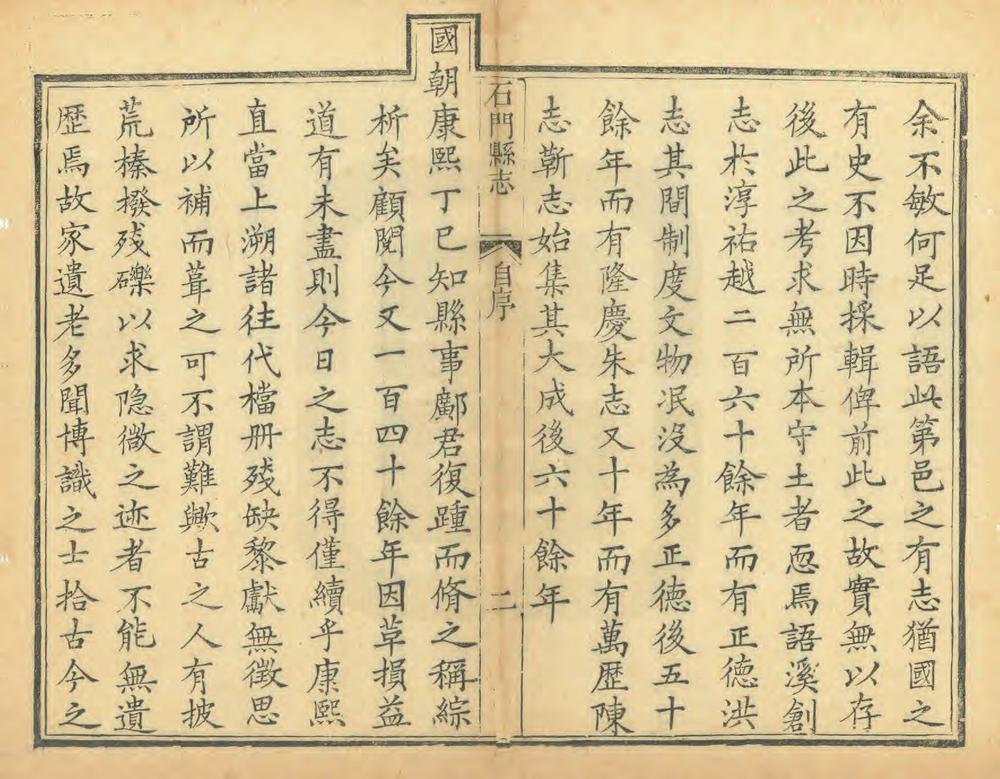 余不敏何足以語此第邑之有志猶國之
有史不因時採輯俾前此之故實無以存
後此之考求無所本守土者恧焉語溪創
志於淳祐越二百六十餘年而有正德洪
志其間制度文物冺沒為多正德後五十
餘年而有隆慶朱志又十年而有萬歴陳
志靳志始集其大成後六十餘年
石門縣志 自序 二
國朝康熙丁巳知縣事鄺君復踵而脩之稱綜
析矣顧閱今又一百四十餘年因革損益
道有未盡則今日之志不得僅續乎康熙
直當上溯諸往代檔册残缺黎獻無徴思
所以補而葺之可不謂難歟古之人有披
荒榛撥残礫以求隐微之迹者不能無遺
歴焉故家遺老多聞博識之士拾古今之